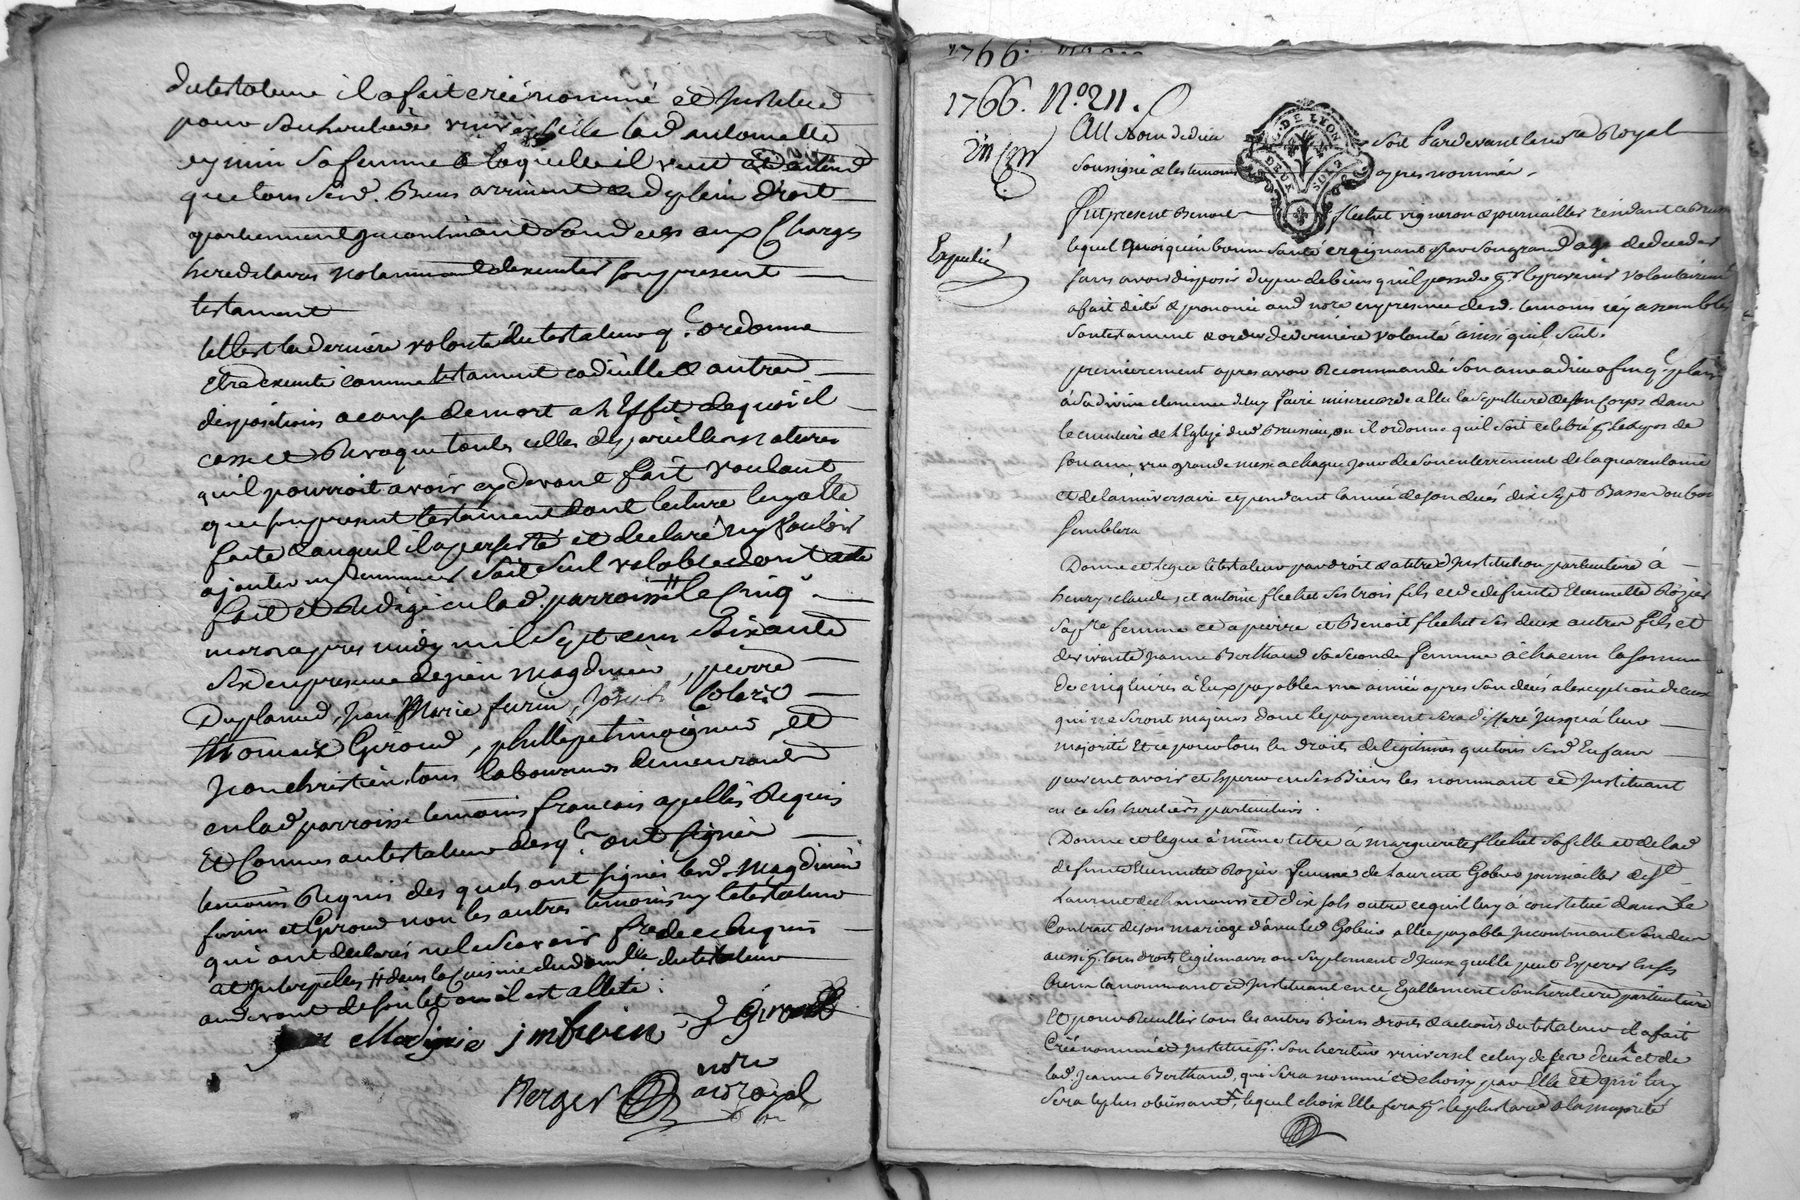 du testateur il a fait créé nommé et institué
pour son heritiere universelle lad. antoinette
eymin sa femme à laquelle il veut et entend
que tous sesd. Biens arrivent de plein droit
apartiennent incontinant son deces aux Charges
hereditaires notamment d'executer son present
testament
telle est la derniere volonté du testateur qu'il ordonne
Etre executé comme testament codicille & autre
disposition a cause de mort a l'Effet de quoi il
casse et Revoque toutes celles de pareilles natures
qu'il pourroit avoir cy devant fait voulant
que son present testament dont lecture luy a été
faite & auquel il a persisté et declaré n'y vouloir
ajouter ny diminuer soit seul valable dont acte
fait et Redigé en lad. parroisse # le cinq
mars apres midy mil sept cens soixante
six en presence de pierre magdinier, pierre
Duplamed, Jean Marie furin, Joseph Colard
thomas Giroud, philippe timoignier, et
Jean chretien tous laboureurs demeurants
en lad. parroisse temoins francois apellés Requis
Et Connus au testateur desq. ont signés
temoins Requis des quels ont signés lesd. Magdinier
furin et Giroud non les autres temoins ny le testateur
qui ont declarés ne le scavoir faire de ce Enquis
et Interpellés # dans la Cuisine du domicille du testateur
au devant de son lit ou il est allité.
Madinie jmfurin J Giroud
Berger
not.re
au Royal
1766.
1766. N° 211.
Au Nom de Dieu soit Pardevant le no.re Royal
soussigné & les temoins apres nommés.
G. DE LYON
DEUX SOLS
Fut present Benoit flechet vigneron & journallier residant a Brus
Expedié
lequel quoiqu'en bonne santé craignant par son grand age de deceder
sans avoir disposé du peu de biens qu'il possede p.r le prevenir volontairement
a fait dicté & prononcé aud. no.re en presence desd. temoins icy assemblés
son testament & ordre de derniere volonté ainsi qu'il suit.
premierement apres avoir Recommandé son ame a dieu afin qu'il plaise
à sa divine clemence de luy faire misericorde a Elu la sepulture de son Corps dans
le cimetiere de l'Eglise dud. Brussieu, ou il ordonne qu'il soit celebré p. le repos de
son ame, une grande messe a chaque jour de son enterrement de la quarantaine
et de l'aniversaire et pendant l'année de son decés dix sept Basses ou bon
semblera
Donne et legue le testateur par droit & a titre d'Institution particuliere à
henry, claude, et antoine flechet ses trois fils et de defunte Etiennette Rozier
sa p.re femme et a pierre et Benoit flechet ses deux autres fils et
de vivante Jeanne Berthaud sa seconde femme à chacun la somme
de cinq livres à Eux payable une année apres son decés a l'exception de ceux
qui ne seront majeurs dont le payement sera differé jusqu'à leur
majorité Et ce pour tous les droits de legitimes que tous sesd. Enfans
peuvent avoir et Esperer en ses Biens les nommant et Instituant
en ce ses heritiers particuliers.
Donne et legue à même titre à marguerite flechet sa fille et de lad.
defunte Etiennette Rozier femme de Laurent Gobin journallier de S.t
Laurent de chamousset dix sols outre ce qu'il luy à constitué dans le
Contrat de son mariage d'avec led. Gobin a elle payable incontinant son deces
aussi p. tous droits legitimaires ou suplement d'Iceux qu'elle peut Esperer en ses
Biens la nommant et Instituant en ce Egallement son heritiere particuliere
Et pour Recueillir tous les autres Biens droits & actions du testateur il a fait
Créé nommé et Institué p. son heritier universel celuy de ses deux fils et de
lad. Jeanne Berthaud, qui sera nommé et choisy par Elle et qui luy
sera le plus obeissant, lequel choix Elle fera p. le plus tard a la majorité